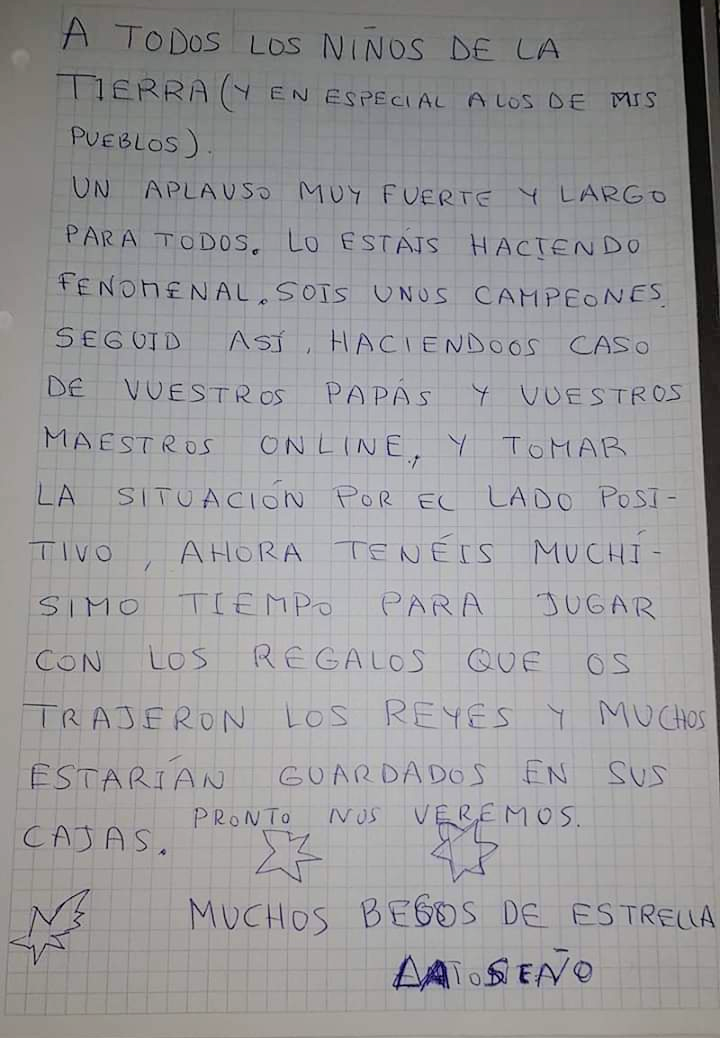 A TODOS LOS NIÑOS DE LA
TIERRA (Y EN ESPECIAL A LOS DE MIS
PUEBLOS).
UN APLAUSO MUY FUERTE Y LARGO
PARA TODOS. LO ESTÁIS HACIENDO
FENOMENAL. SOIS UNOS CAMPEONES.
SEGUID ASÍ, HACIENDOOS CASO
DE VUESTROS PAPÁS Y VUESTROS
MAESTROS ONLINE, Y TOMAR
LA SITUACIÓN POR EL LADO POSI-
TIVO, AHORA TENÉIS MUCHÍ-
SIMO TIEMPO PARA JUGAR
CON LOS REGALOS QUE OS
TRAJERON LOS REYES Y MUCHOS
ESTARÍAN GUARDADOS EN SUS
CAJAS. PRONTO NOS VEREMOS.
MUCHOS BESOS DE ESTRELLA